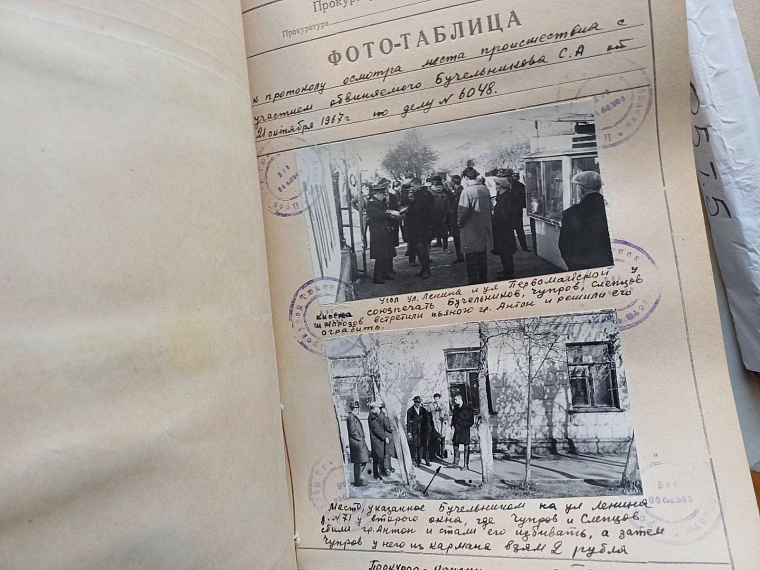 Прокур
Прокуратура
ФОТО-ТАБЛИЦА
к протоколу осмотра места происшествия с
участием обвиняемого Бучельникова С.А от
21 октября 1967г по делу № 6048.
Угол ул. Ленина и ул Первомайской у
киоска союзпечать Бучельников, Чупров, Слепцов
и Морозов встретили пьяного гр. Антон и решили его
ограбить.
Место, указанное Бучельником на ул Ленина
д. №71 у второго окна, где Чупров и Слепцов
сбили гр. Антон и стали его избивать, а затем
Чупров у него из кармана взял 2 рубля